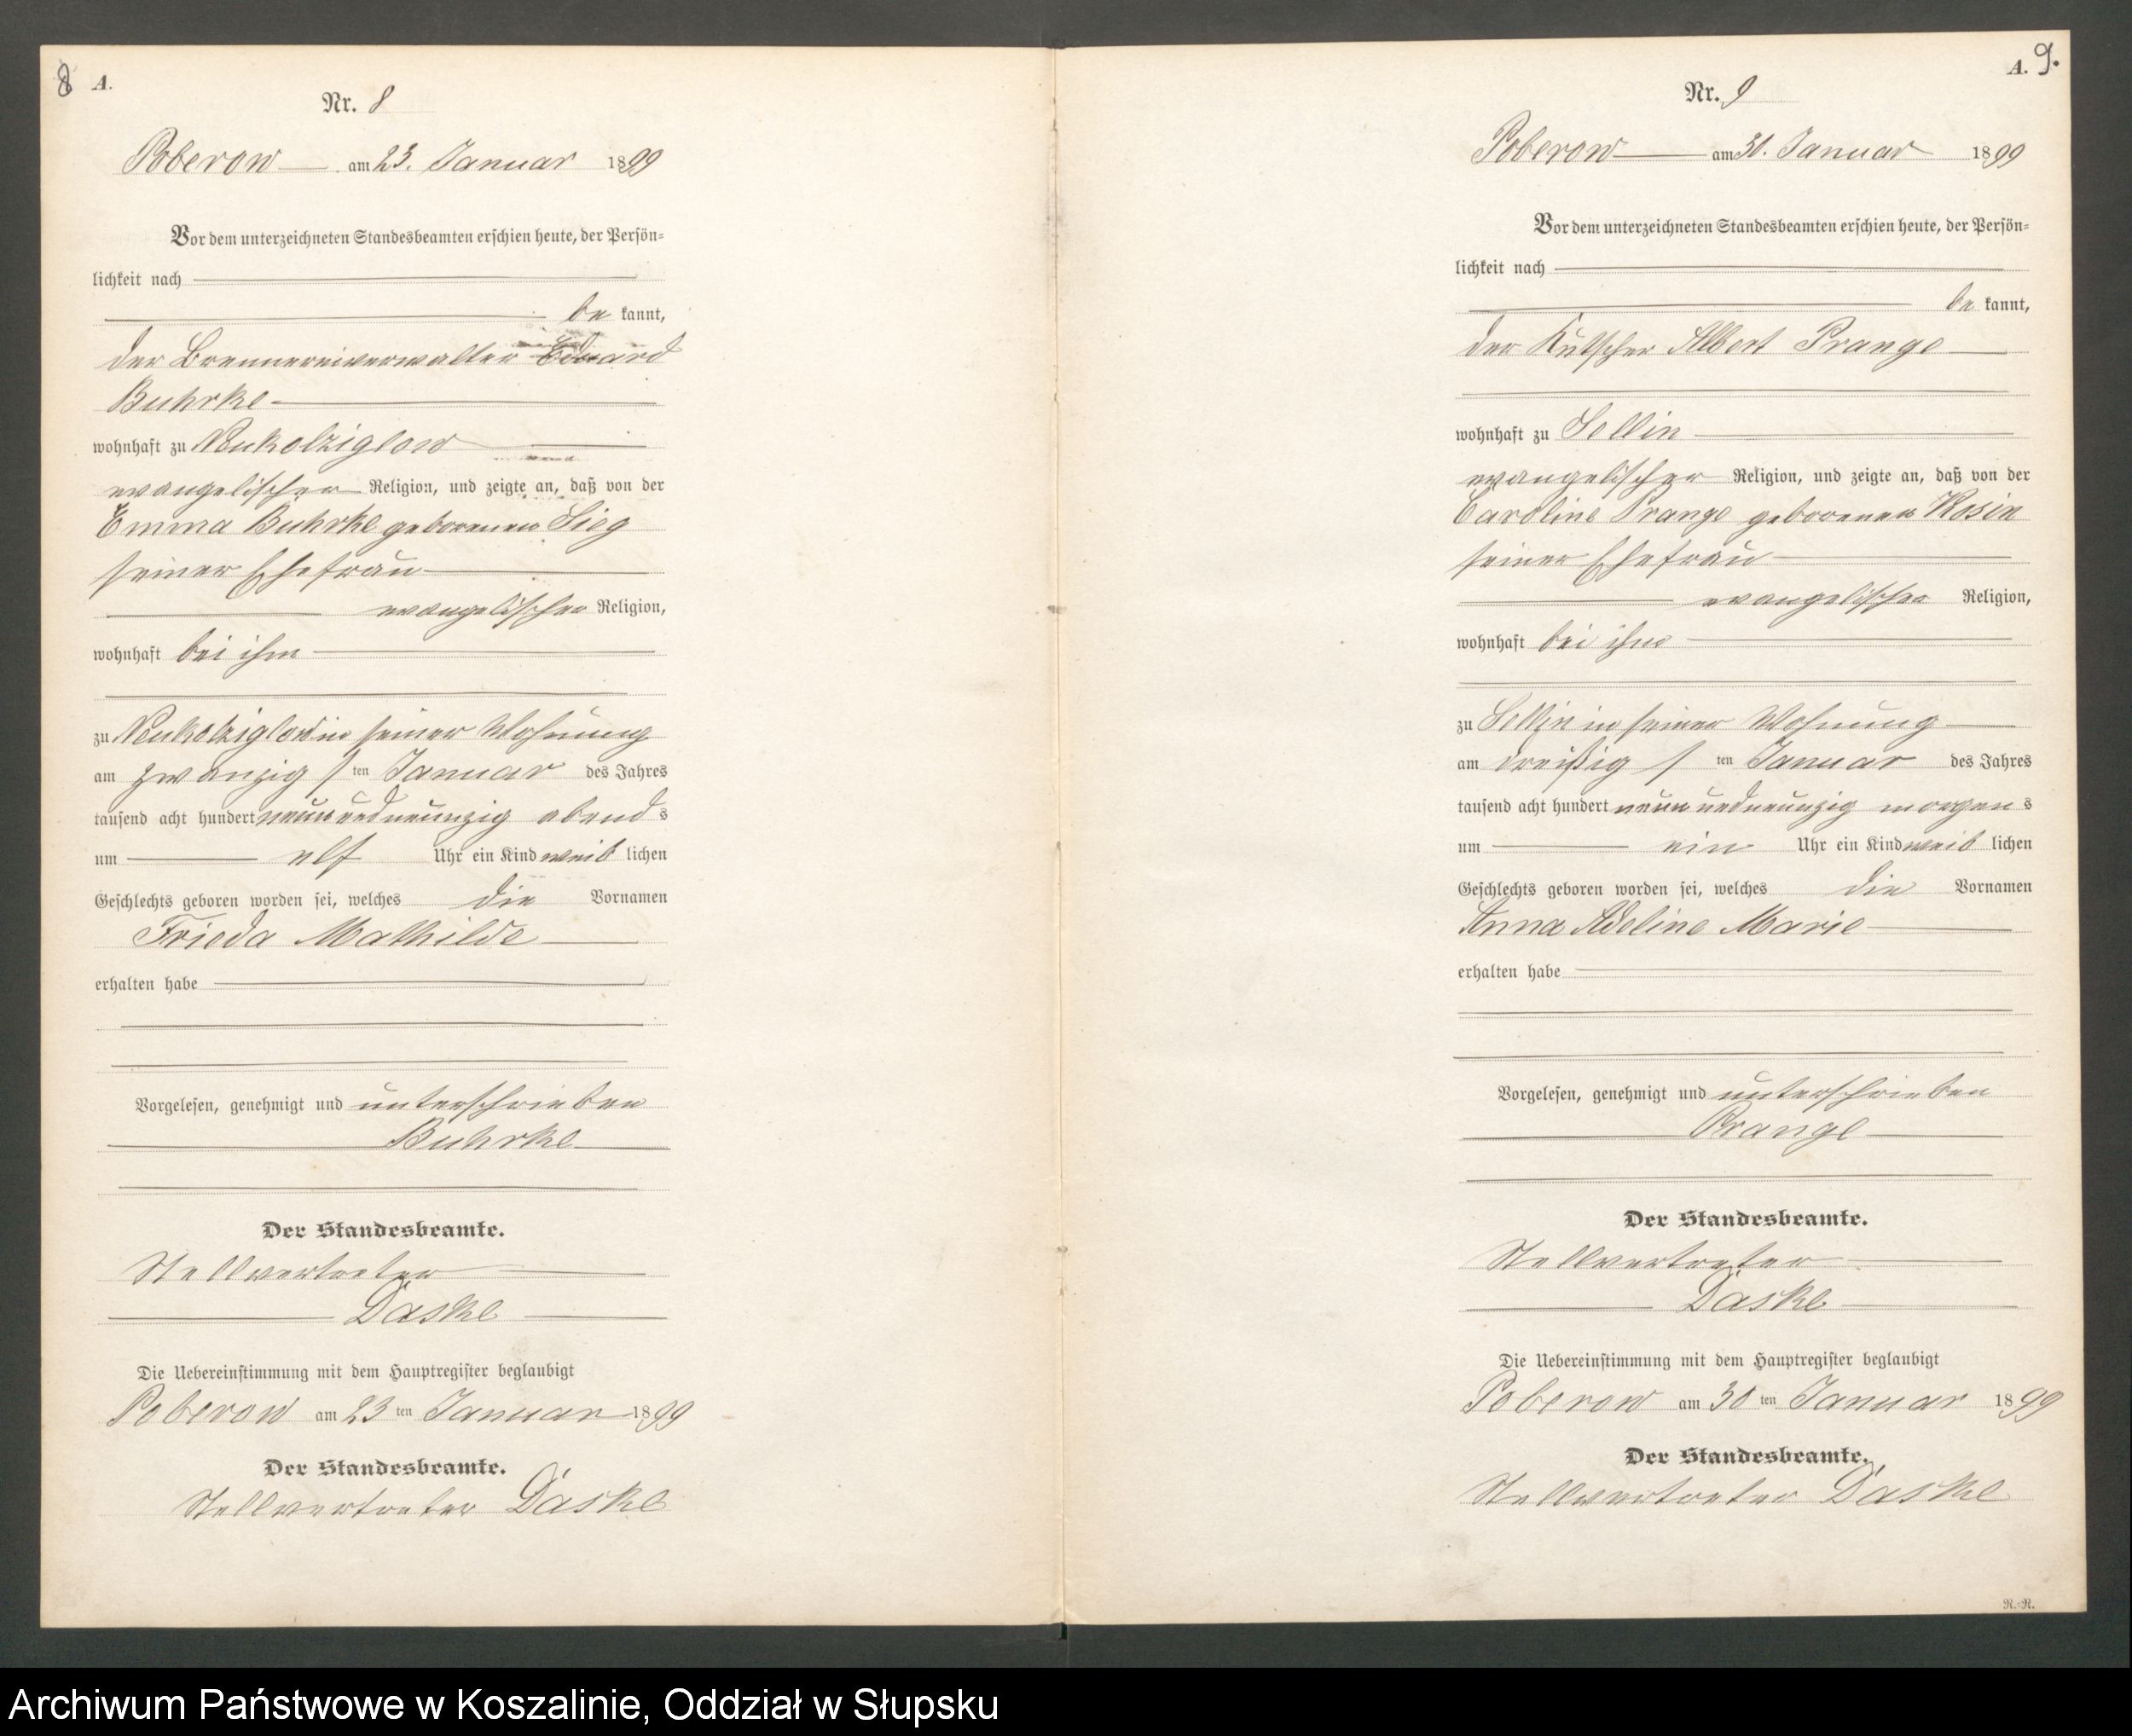 8 A.
Nr. 8
Poberow am 23. Januar 1899
Vor dem unterzeichneten Standesbeamten erschien heute, der Persön-
lichkeit nach
be kannt,
der Brennereiverwalter Eduard
Buhrke
wohnhaft zu Neukolziglow
evangelischer Religion, und zeigte an, daß von der
Emma Buhrke geborenen Sieg
seiner Ehefrau
evangelischer Religion,
wohnhaft bei ihm
zu Neukolziglow in seiner Wohnung
am zwanzig / ten Januar des Jahres
tausend acht hundert neunundneunzig abend s
um elf Uhr ein Kind weib lichen
Geschlechts geboren worden sei, welches die Vornamen
Frieda Mathilde
erhalten habe
Vorgelesen, genehmigt und unterschrieben
Buhrke
Der Standesbeamte.
Stellvertreter
Daske
Die Uebereinstimmung mit dem Hauptregister beglaubigt
Poberow am 23 ten Januar 1899
Der Standesbeamte.
Stellvertreter Daske
A. 9.
Nr. 9
Poberow am 30. Januar 1899
Vor dem unterzeichneten Standesbeamten erschien heute, der Persön-
lichkeit nach
be kannt,
der Kutscher Albert Prange
wohnhaft zu Sellin
evangelischer Religion, und zeigte an, daß von der
Caroline Prange geborenen Rosin
seiner Ehefrau
evangelischer Religion,
wohnhaft bei ihm
zu Sellin in seiner Wohnung
am dreißig / ten Januar des Jahres
tausend acht hundert neunundneunzig morgen s
um ein Uhr ein Kind weib lichen
Geschlechts geboren worden sei, welches die Vornamen
Anna Adeline Marie
erhalten habe
Vorgelesen, genehmigt und unterschrieben
Prange
Der Standesbeamte.
Stellvertreter
Daske
Die Uebereinstimmung mit dem Hauptregister beglaubigt
Poberow am 30 ten Januar 1899
Der Standesbeamte.
Stellvertreter Daske
R.-R.
Archiwum Państwowe w Koszalinie, Oddział w Słupsku